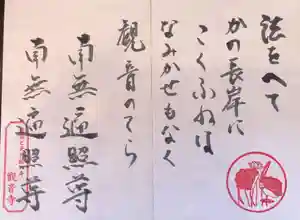 法をへて
かの長岸に
こくふねは
なみかせもなく
観音のてら
南無遍照尊
南無遍照尊
観音寺